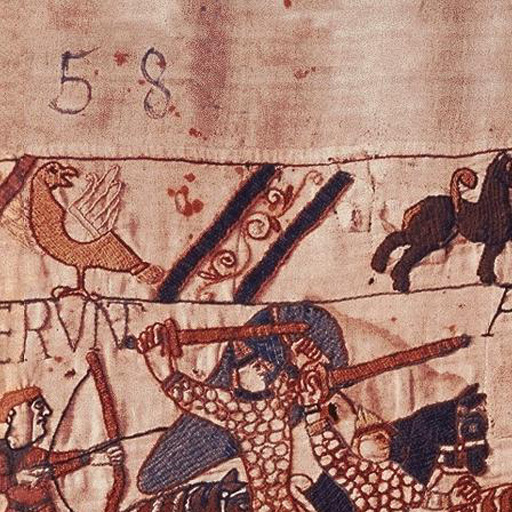 58
ERVNT